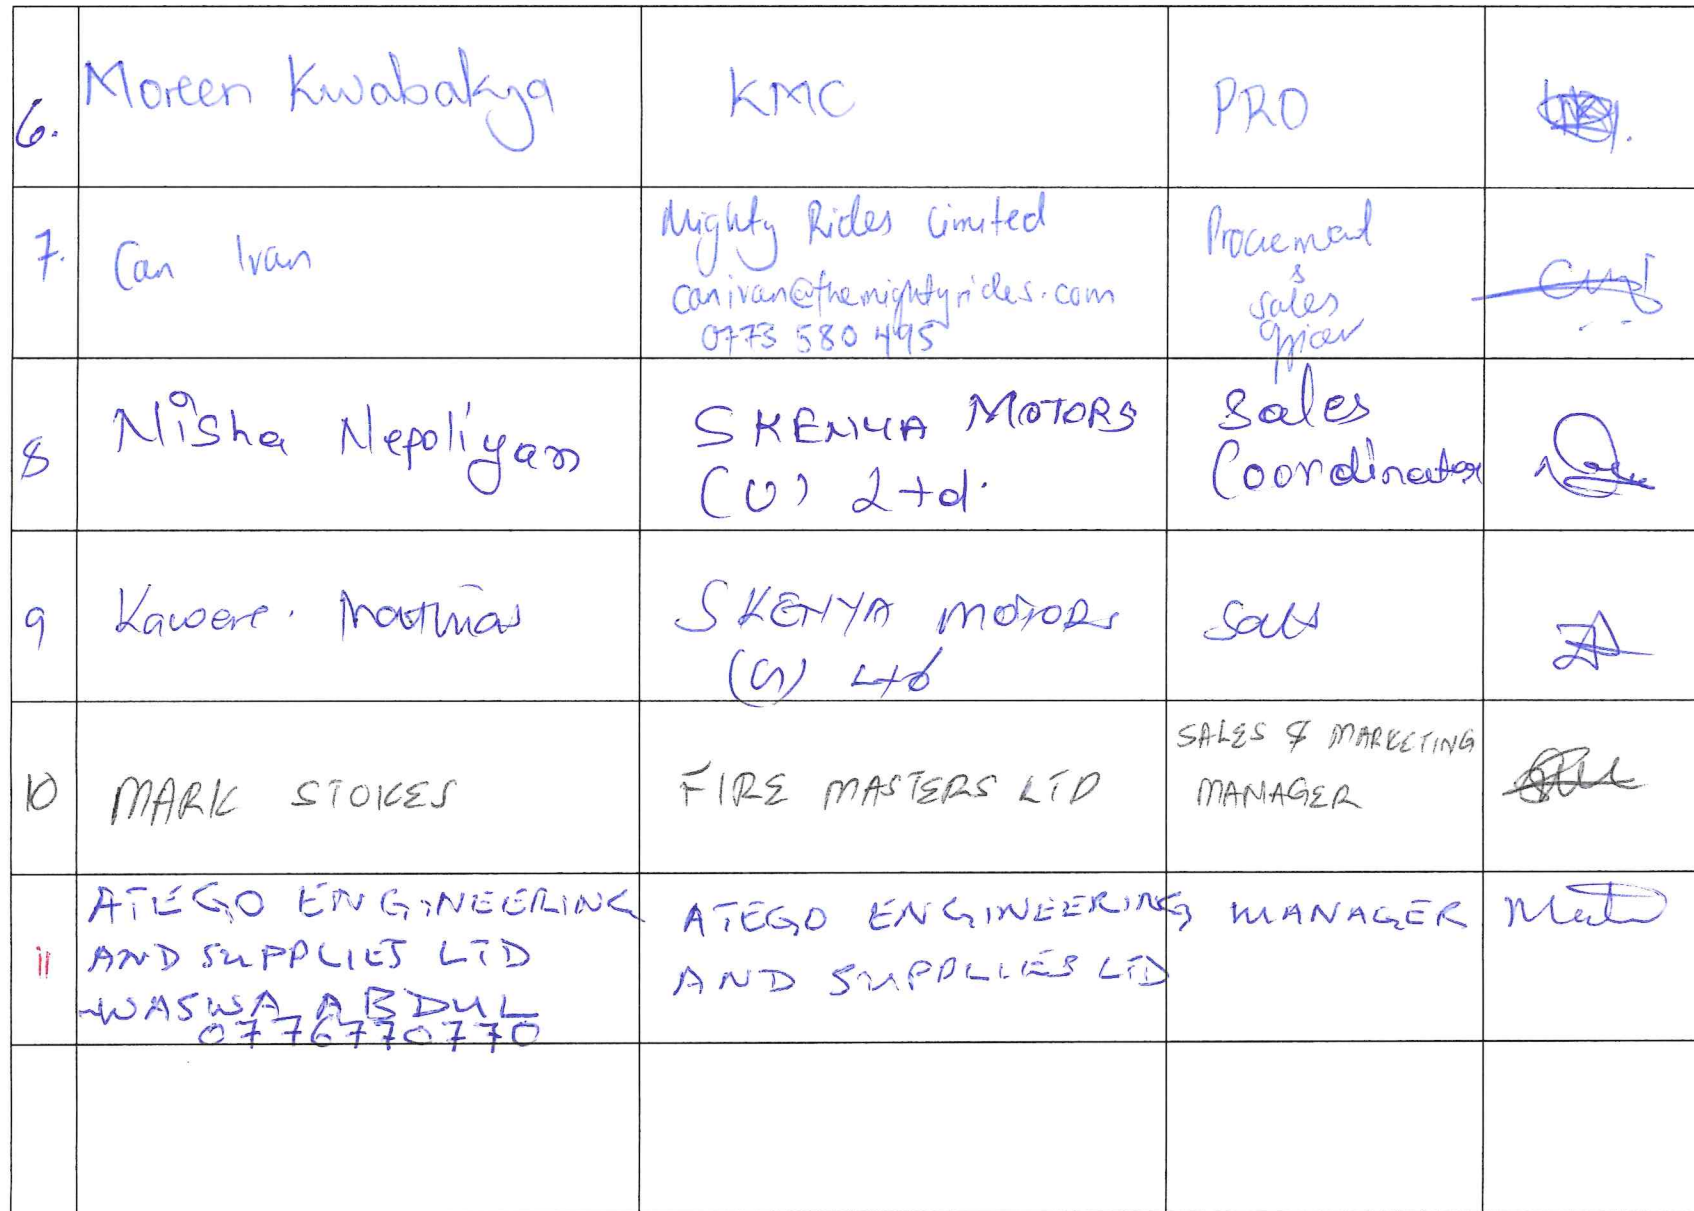 6. Moreen Kwabakya KMC PRO
7. Can Ivan Mighty Rides Limited
canivan@themightyrides.com
0773 580 495
Procuement
&
sales
officer
8 Nisha Nepoliyan SKENYA MOTORS
(U) Ltd.
Sales
Coordinator
9 Kawere. Mathias SKENYA MOTORS
(U) Ltd
Sales
10 MARK STOKES FIRE MASTERS LTD
SALES & MARKETING
MANAGER
11 ATEGO ENGINEERING
AND SUPPLIES LTD
-WASWA ABDUL
0776770770
ATEGO ENGINEERING
AND SUPPLIES LTD
MANAGER